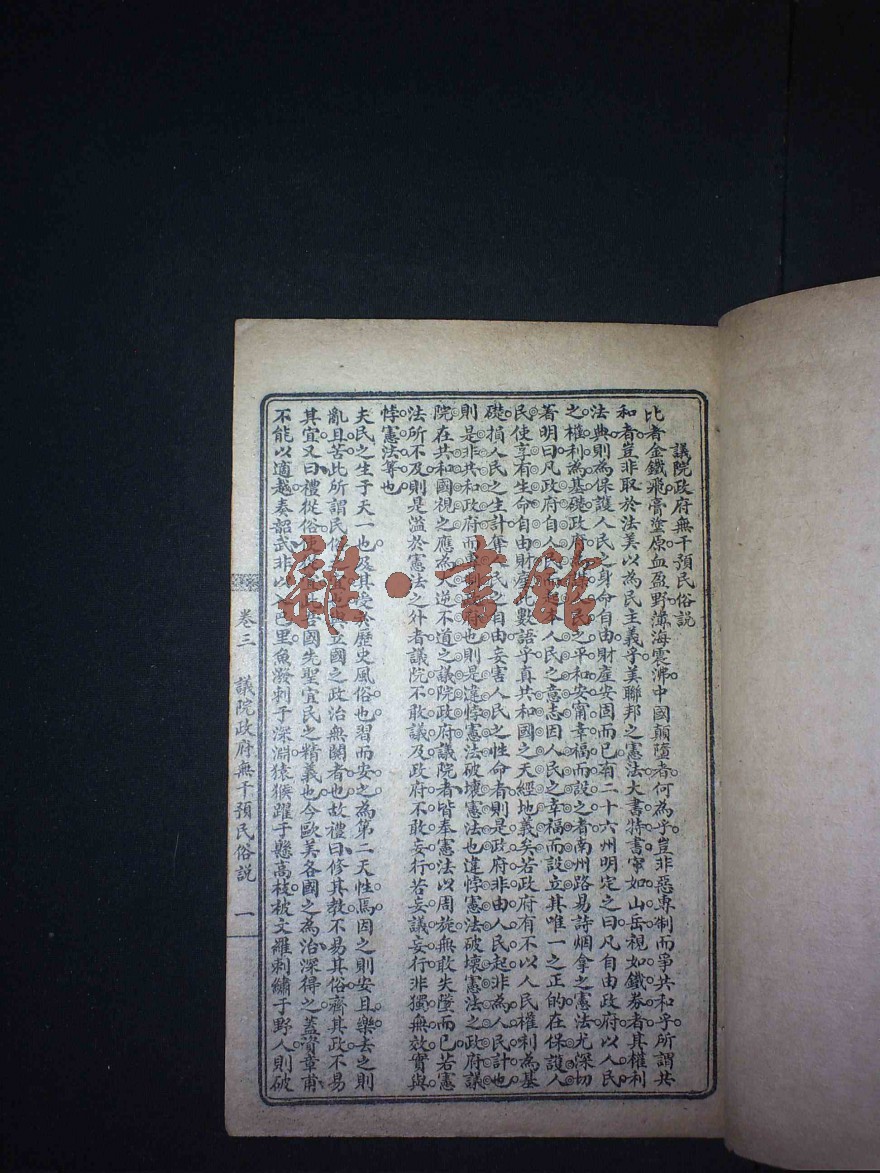 議院政府無干預民俗說
比者金鐵飛膏塗原血盈野瀛海震沸中國顛墮者何為乎豈非惡專制而爭共和乎所謂共
和者豈非取於法美以為民主義乎美聯邦之憲法大書特書寧如山岳視如鐵券者其權利
法典則為保護人民之身命自由財產安固而已有二十六州明定之曰凡自由政府以人民
之權利為基礎政府民之平和安甯幸福而設之者南州路易詩烟拿之憲法尤深切
著明曰凡政府自人民本人民之意志因人民之幸福而設立其唯一之正的在保護人
民使享有生命自由財產此數語乎真共和國之天經地義矣若政府有不以人民權利為基
礎損人民之生計奪民之自由妄害人民之性命者則是政府非由人民起非為人民計也
則是非共和政府而專制政府也則是違悖憲法破壞憲法也違悖憲法破壞憲法之政府議
院在共和國視之應為大逆不道之議院政府議院者皆奉憲法以周旋無敢失墜而已若憲
法所不及則是溢於憲法之外者議院不敢議及政府不敢妄行若妄議妄行非獨無效實與
悖憲法等也
夫民之生于天一也及其受於歷史風俗也習而安之為第二天性焉因之則安且樂去之則
亂且苦此所謂民俗與立國之政治無關者也故禮曰修其教不易其俗齊其政不易
其宜又曰禮從俗使從宜此吾國先聖宜民之精義也今歐美各國之為治深得之蓋資章甫
不能以適越奏韶武非以巴里魚潑刺于深淵猿猴躍于懸高枝被文羅刺繡于野人則破
卷三 議院政府無干預民俗說 一
雜·書館